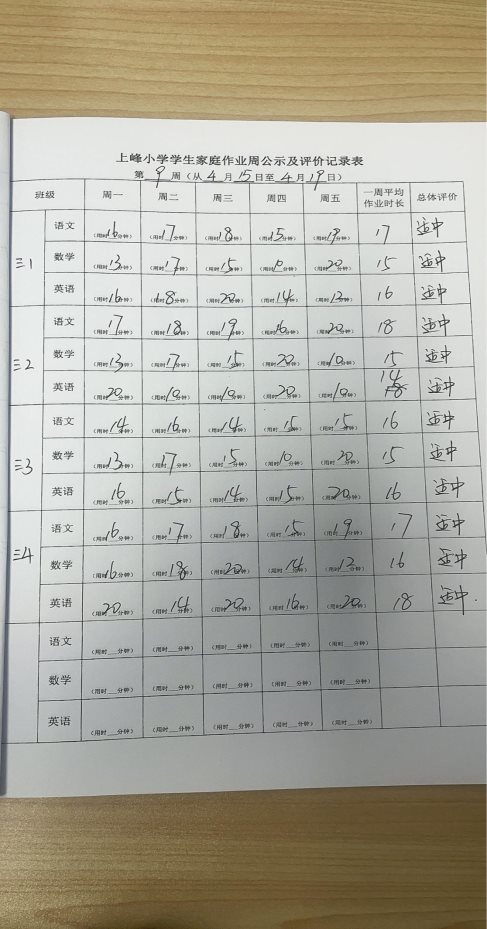 上峰小学学生家庭作业周公示及评价记录表
第 9 周（从 4 月 15 日至 4 月 19 日）
班级 周一 周二 周三 周四 周五 一周平均作业时长 总体评价
三1 语文 （用时16分钟） （用时17分钟） （用时18分钟） （用时15分钟） （用时19分钟） 17 适中
数学 （用时13分钟） （用时17分钟） （用时15分钟） （用时10分钟） （用时20分钟） 15 适中
英语 （用时16分钟） （用时18分钟） （用时20分钟） （用时14分钟） （用时12分钟） 16 适中
三2 语文 （用时17分钟） （用时18分钟） （用时19分钟） （用时16分钟） （用时20分钟） 18 适中
数学 （用时13分钟） （用时17分钟） （用时15分钟） （用时20分钟） （用时10分钟） 15 适中
英语 （用时20分钟） （用时10分钟） （用时10分钟） （用时20分钟） （用时10分钟） 14 适中
三3 语文 （用时14分钟） （用时16分钟） （用时14分钟） （用时15分钟） （用时15分钟） 16 适中
数学 （用时13分钟） （用时17分钟） （用时15分钟） （用时10分钟） （用时20分钟） 15 适中
英语 （用时16分钟） （用时15分钟） （用时14分钟） （用时15分钟） （用时20分钟） 16 适中
三4 语文 （用时16分钟） （用时17分钟） （用时18分钟） （用时15分钟） （用时19分钟） 17 适中
数学 （用时16分钟） （用时18分钟） （用时20分钟） （用时14分钟） （用时12分钟） 16 适中
英语 （用时20分钟） （用时14分钟） （用时20分钟） （用时16分钟） （用时20分钟） 18 适中.
语文 （用时__分钟） （用时__分钟） （用时__分钟） （用时__分钟） （用时__分钟）
数学 （用时__分钟） （用时__分钟） （用时__分钟） （用时__分钟） （用时__分钟）
英语 （用时__分钟） （用时__分钟） （用时__分钟） （用时__分钟） （用时__分钟）